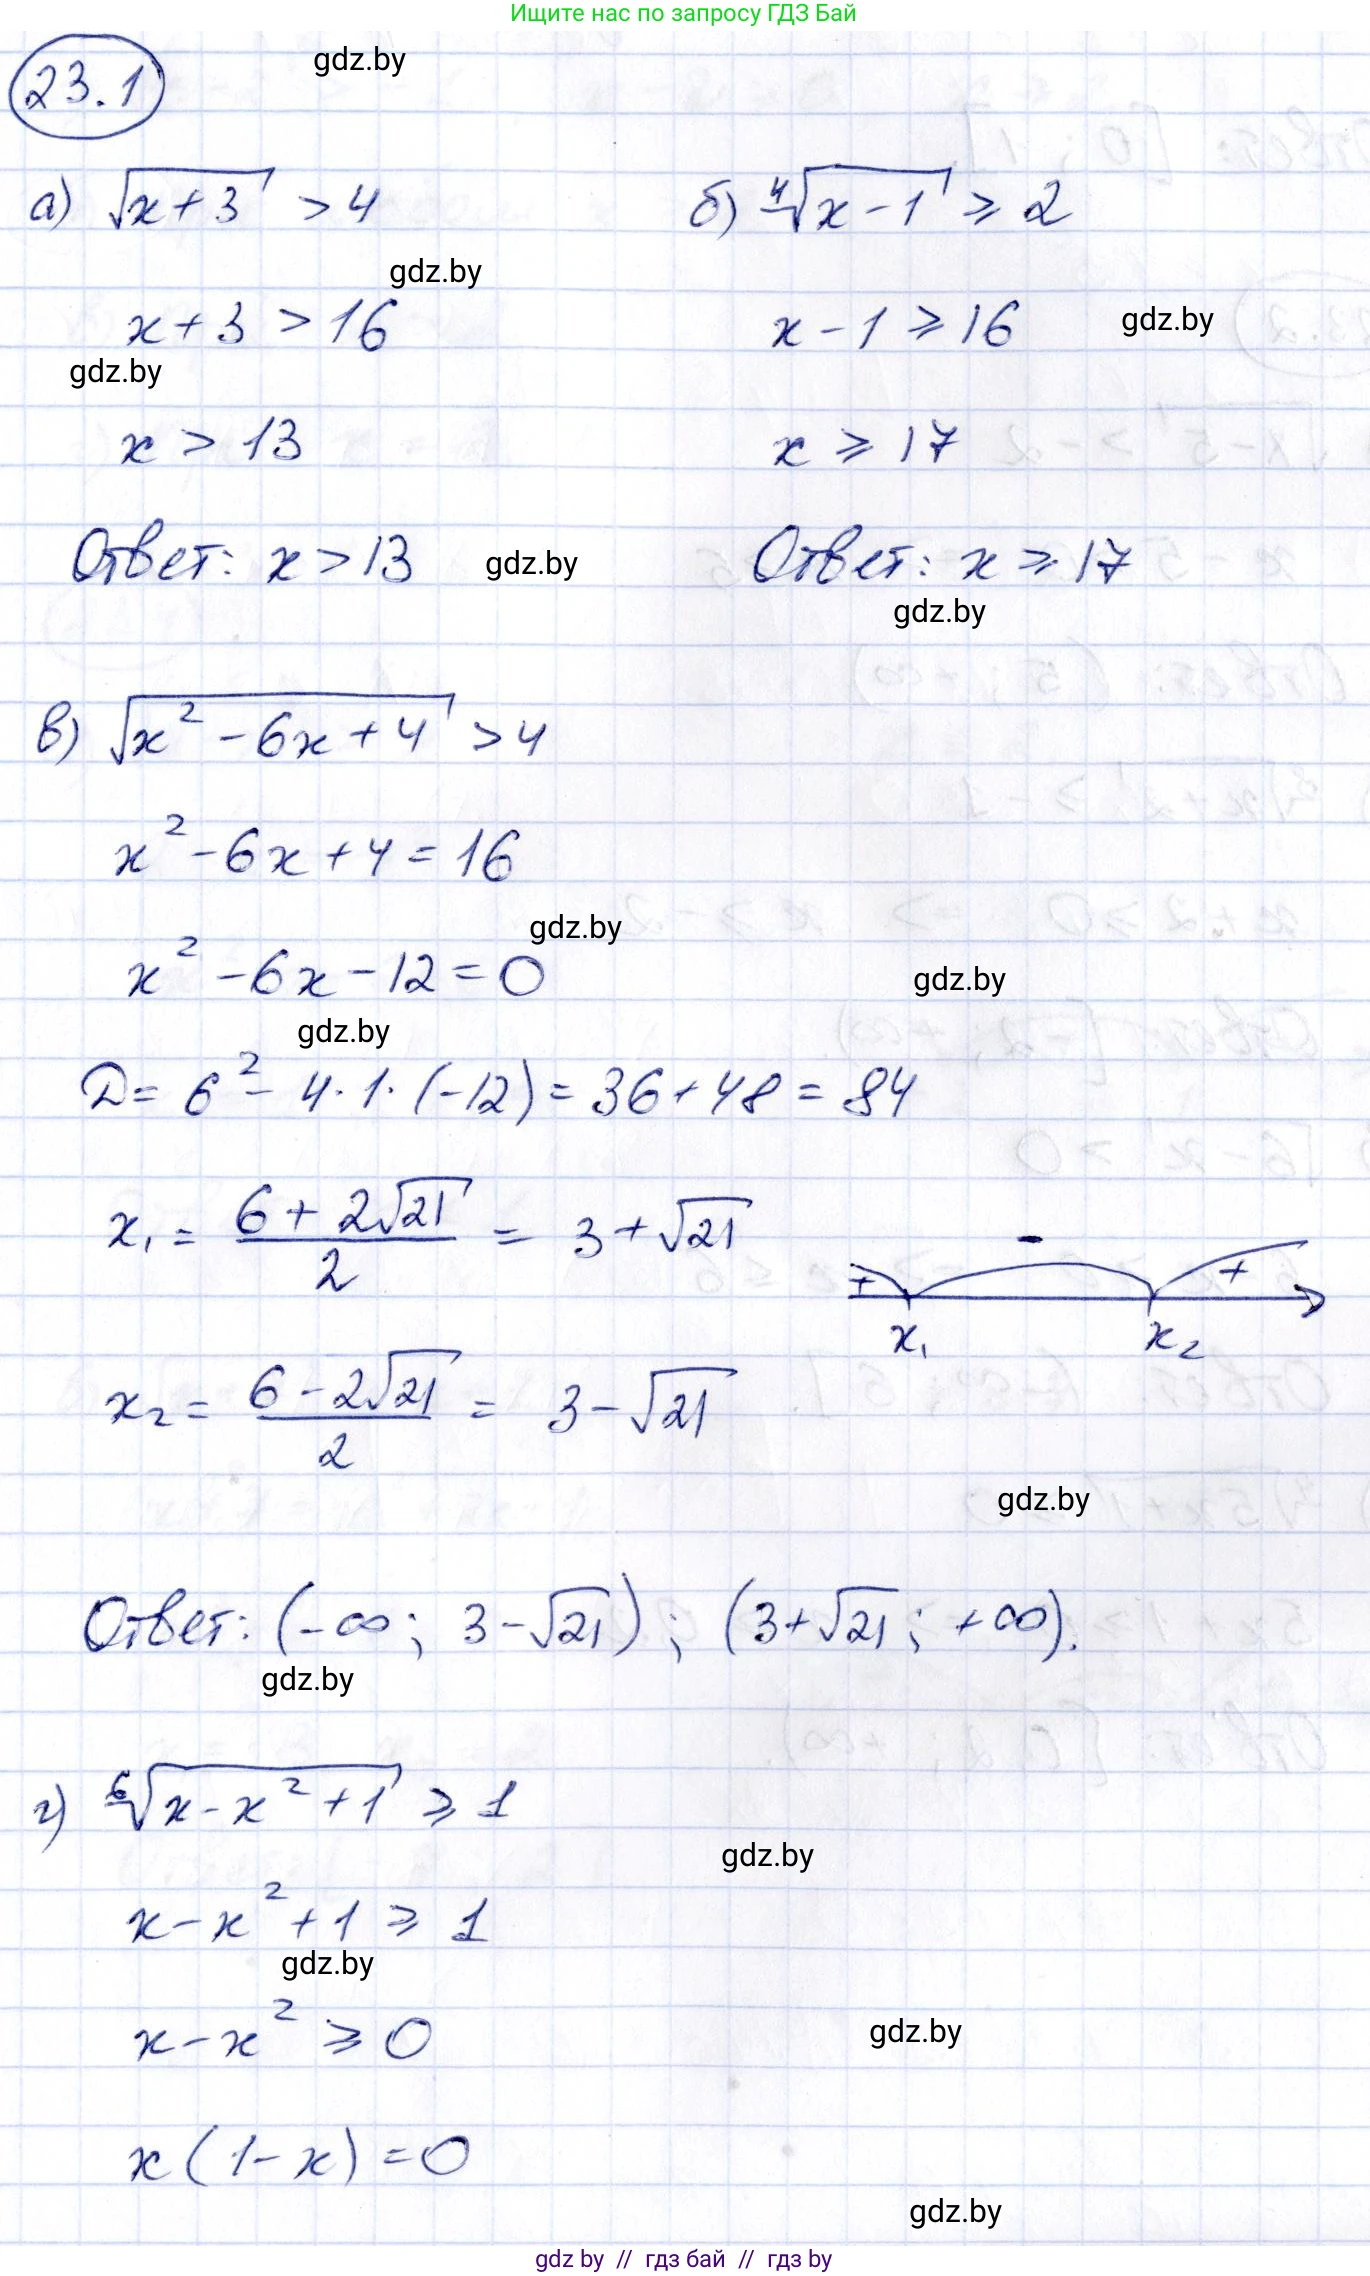 Ищите нас по запросу ГДЗ Бай
23.1
gdz.by
а) √(x+3) > 4
б) ⁴√(x-1) ⩾ 2
gdz.by
x+3 > 16
x-1 ⩾ 16
gdz.by
gdz.by
x > 13
x ⩾ 17
Ответ: x > 13
gdz.by
Ответ: x ⩾ 17
gdz.by
в) √(x²-6x+4) > 4
x²-6x+4 = 16
gdz.by
x²-6x-12 = 0
gdz.by
gdz.by
D = 6² - 4·1·(-12) = 36+48 = 84
x₁ = (6+2√21)/2 = 3+√21
+ - +
x₁ x₂
x₂ = (6-2√21)/2 = 3-√21
gdz.by
Ответ: (-∞; 3-√21); (3+√21; +∞).
gdz.by
г) ⁶√(x-x²+1) ⩾ 1
gdz.by
x-x²+1 ⩾ 1
gdz.by
x-x² ⩾ 0
gdz.by
x(1-x) = 0
gdz.by
gdz by // гдз бай // гдз by